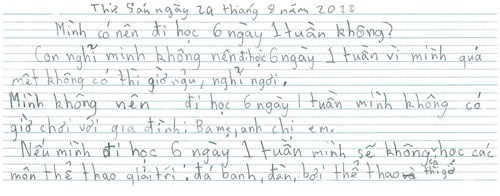 Thứ Sáu ngày 29 tháng 8 năm 2018
Mình có nên đi học 6 ngày 1 tuần không?
Con nghĩ mình không nên đi học 6 ngày 1 tuần vì mình quá
mệt không có thì giờ ngủ, nghỉ ngơi.
Mình không nên đi học 6 ngày 1 tuần mình không có
giờ chơi với gia đình: Bamẹ, anh chị em.
Nếu mình đi học 6 ngày 1 tuần mình sẽ không có thì giờ học các
môn thể thao giải trí: đá banh, đàn, bơi thể thao